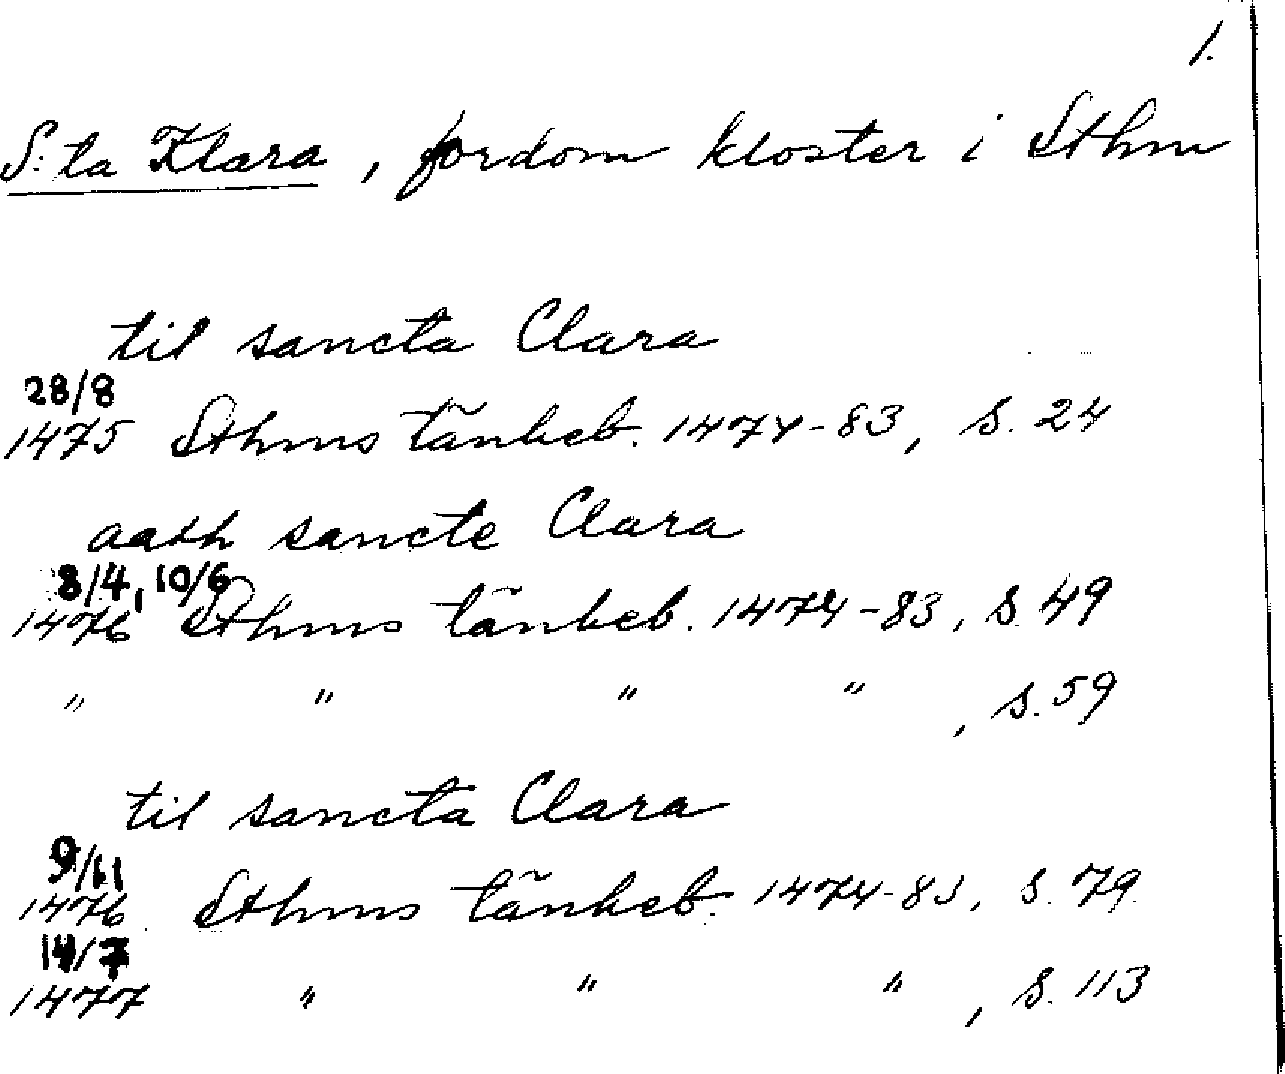 1.
S:ta Klara, fordom kloster i Sthm
til sancta Clara
28/8
1475 Sthms tänkeb. 1474-83, s. 24
aath sancte Clara
8/4, 10/6
1476 Sthms tänkeb. 1474-83, s. 49
" " " " , s. 59
til sancta Clara
9/11
1476 Sthms tänkeb. 1474-83, s. 79
14/7
1477 " " " , s. 113